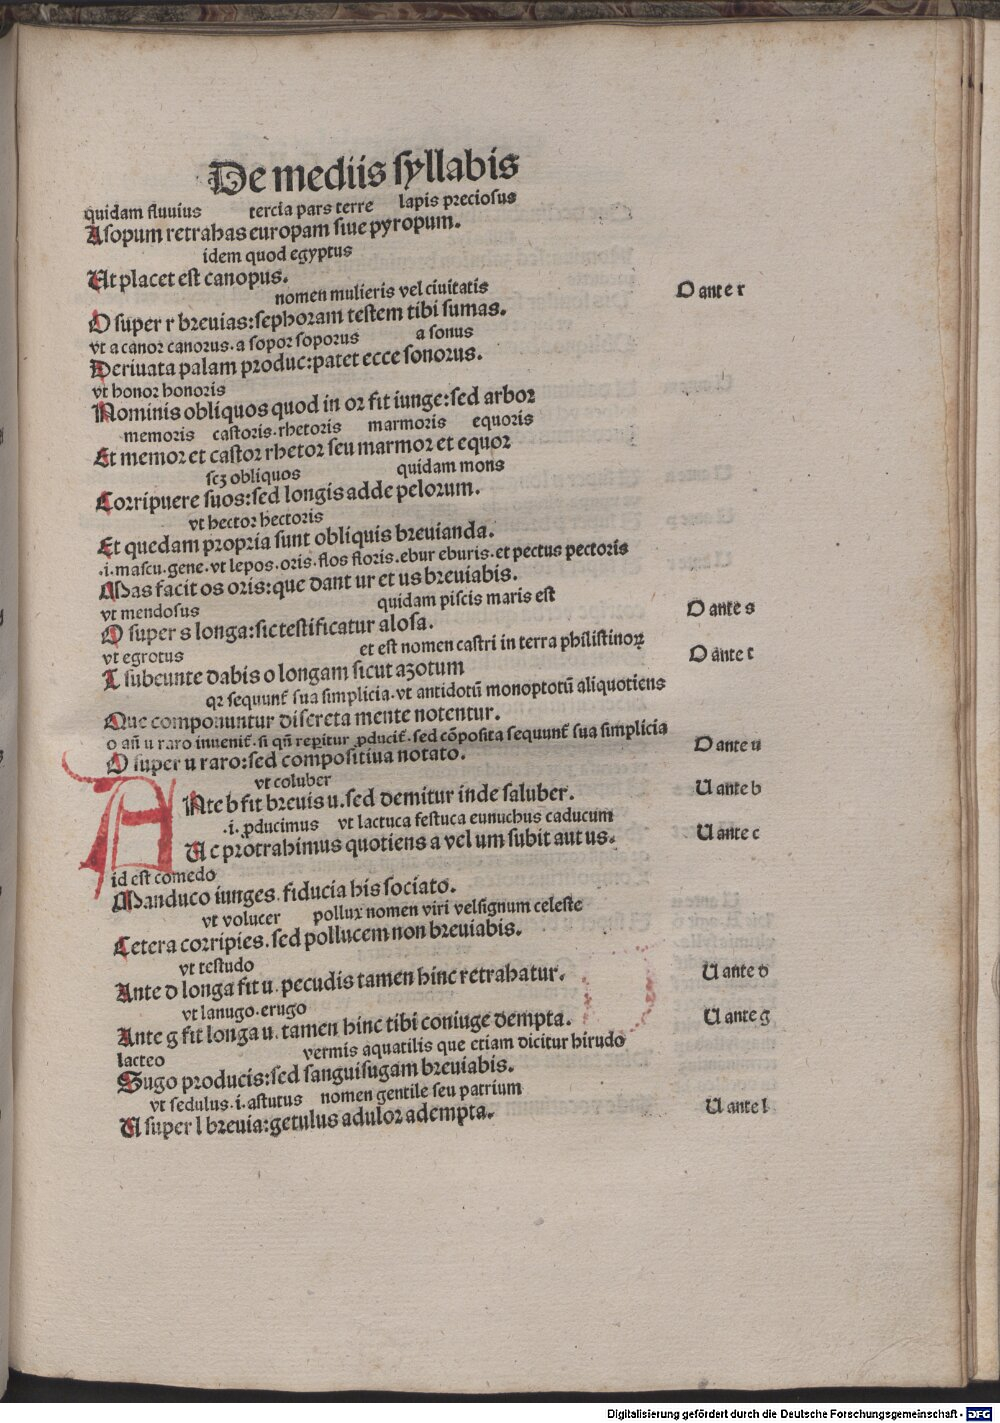 De mediis syllabis
quidam fluuius tercia pars terre lapis preciosus
Asopum retrahas europam siue pyropum.
idem quod egyptus
Ut placet est canopus.
nomen mulieris vel ciuitatis
O super r breuias:sephoram testem tibi sumas.
O ante r
vt a canor canorus.a sopor soporus a sonus
Deriuata palam produc:patet ecce sonorus.
vt honor honoris
Nominis obliquos quod in or fit iunge:sed arbor
memoris castoris.rhetoris marmoris equoris
Et memor et castor rhetor seu marmor et equor
scꝫ obliquos quidam mons
Corripuere suos:sed longis adde pelorum.
vt hector hectoris
Et quedam propria sunt obliquis breuianda.
.i.mascu.gene.vt lepos.oris.flos floris.ebur eburis.et pectus pectoris
Mas facit os oris:que dant ur et us breuiabis.
vt mendosus quidam piscis maris est
O super s longa:sic testificatur alosa.
O ante s
vt egrotus et est nomen castri in terra philistinoꝝ
T subeunte dabis o longam sicut azotum
O ante t
qꝛ sequunt᷑ sua simplicia.vt antidotū monoptotū aliquotiens
Que componuntur discreta mente notentur.
o añ u raro inuenit᷑.si qñ reperitur ꝓducit᷑.sed cōposita sequunt᷑ sua simplicia
O super u raro:sed compositiua notato.
O ante u
vt coluber
ANte b fit breuis u.sed demitur inde saluber.
U ante b
.i. ꝓducimus vt lactuca festuca eunuchus caducum
U c protrahimus quotiens a vel um subit aut us.
U ante c
id est comedo
Manduco iunges.fiducia his sociato.
vt volucer pollux nomen viri vel signum celeste
Cetera corripies.sed pollucem non breuiabis.
vt testudo
Ante d longa fit u.pecudis tamen hinc retrahatur.
U ante d
vt lanugo.erugo
Ante g fit longa u.tamen hinc tibi coniuge dempta.
U ante g
lacteo vermis aquatilis que etiam dicitur hirudo
Sugo producis:sed sanguisugam breuiabis.
vt sedulus.i.astutus nomen gentile seu patrium
U super l breuia:getulus adulor adempta.
U ante l
Digitalisierung gefördert durch die Deutsche Forschungsgemeinschaft - DFG